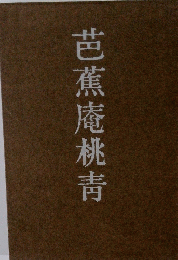 芭蕉庵桃青